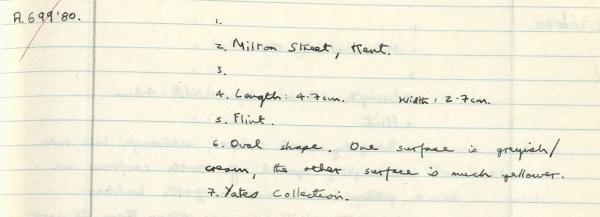 A.699'80.
1.
2. Milton Street, Kent.
3.
4. Length: 4.7cm. Width: 2.7cm.
5. Flint.
6. Oval shape. One surface is greyish/
cream, the other surface is much yellower.
7. Yates Collection.